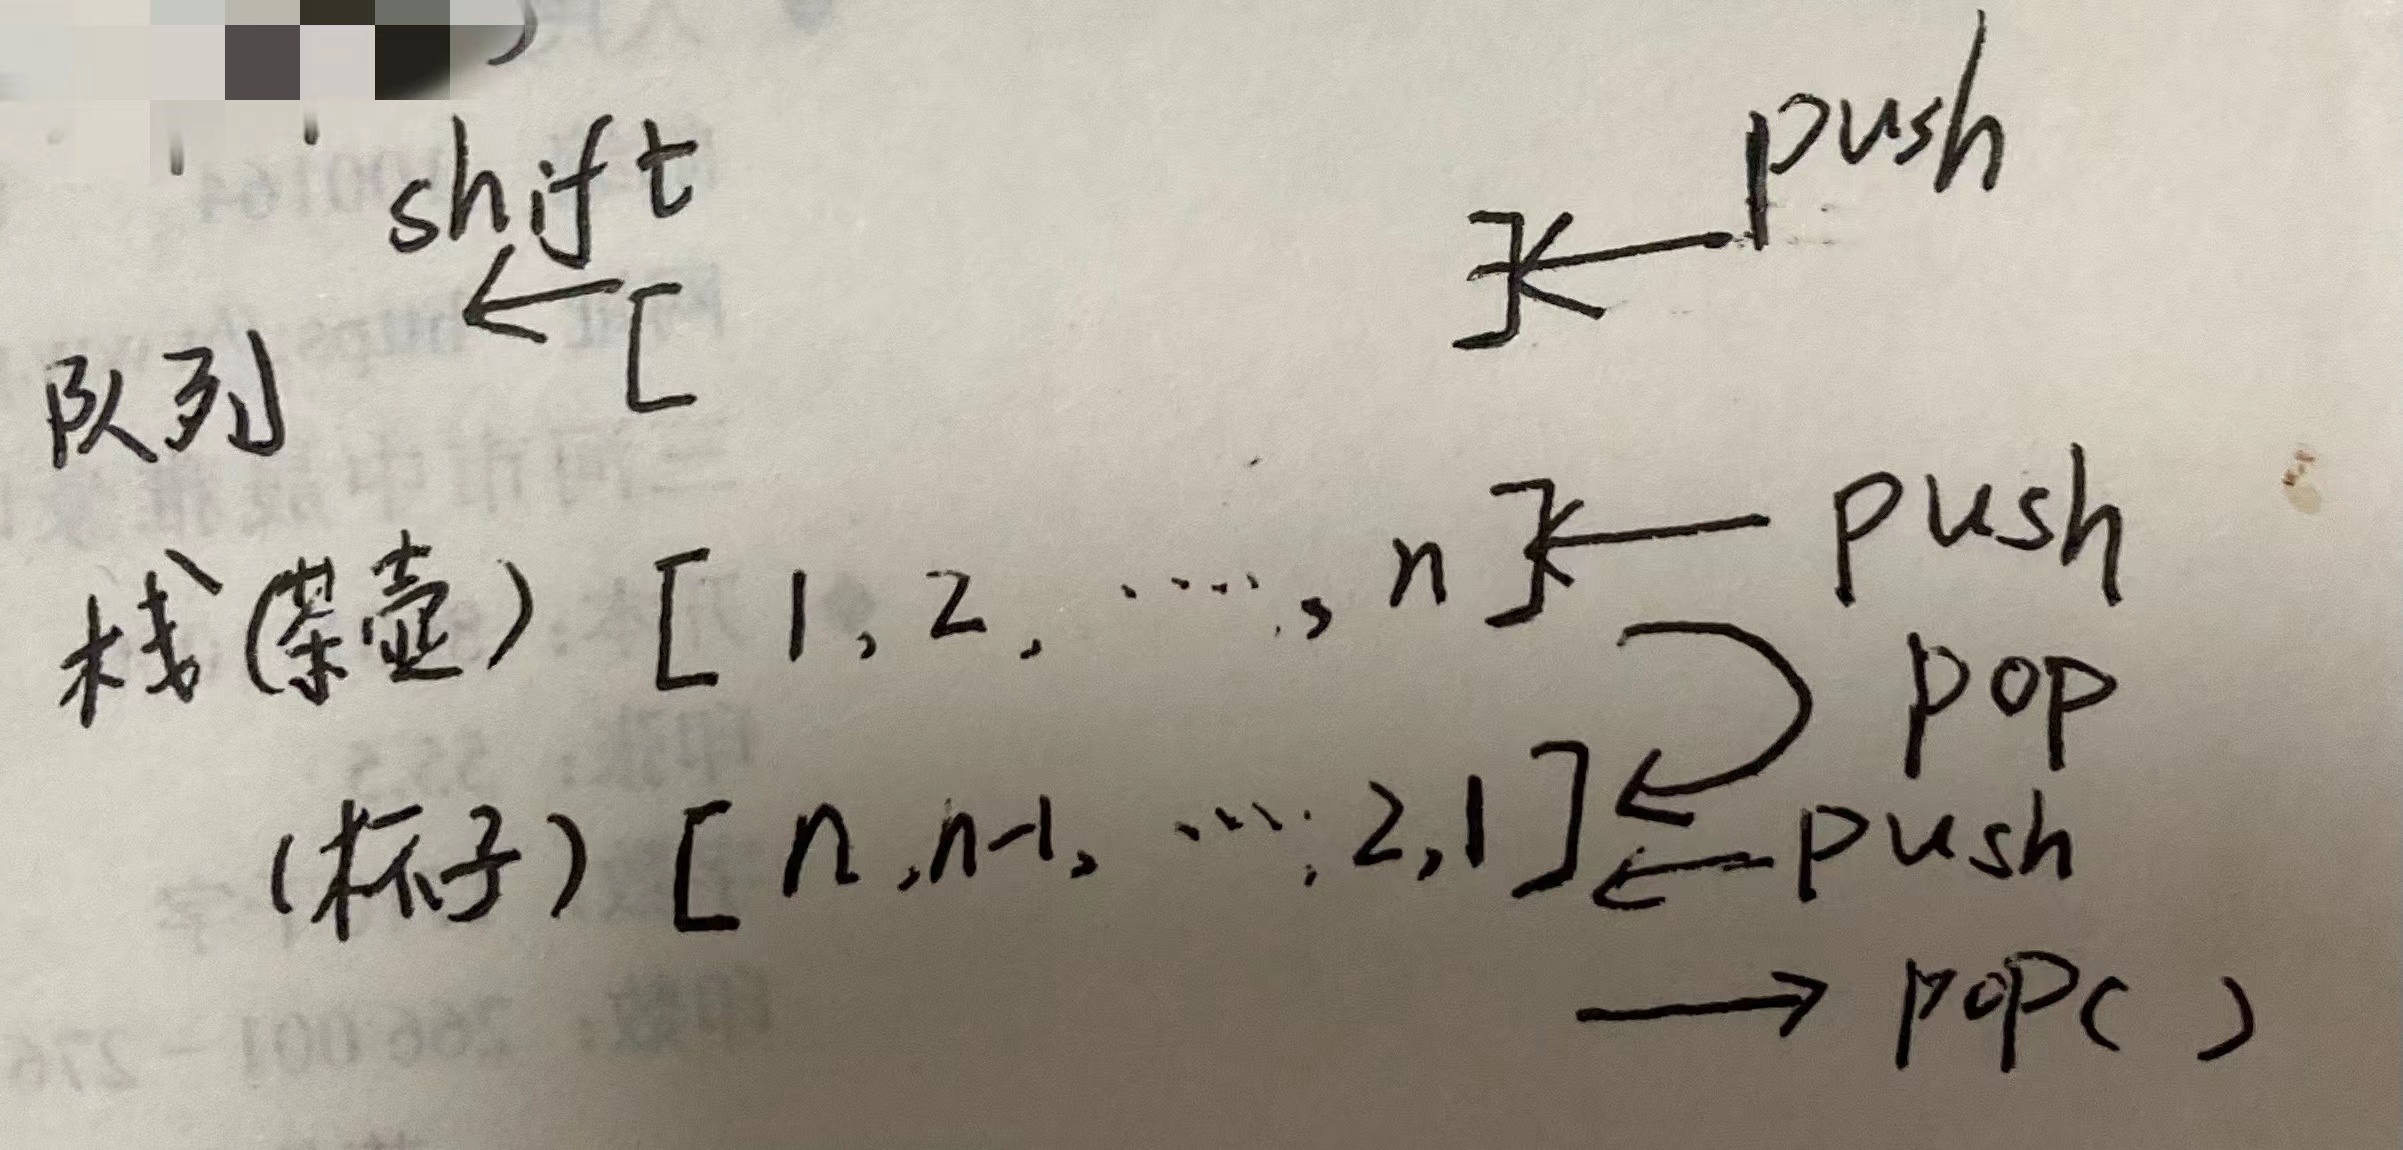 shift push
队列 [ ]
栈(茶壶) [ 1, 2, ····, n ] push
pop
(杯子) [ n, n-1, ···, 2, 1 ] push
pop( )